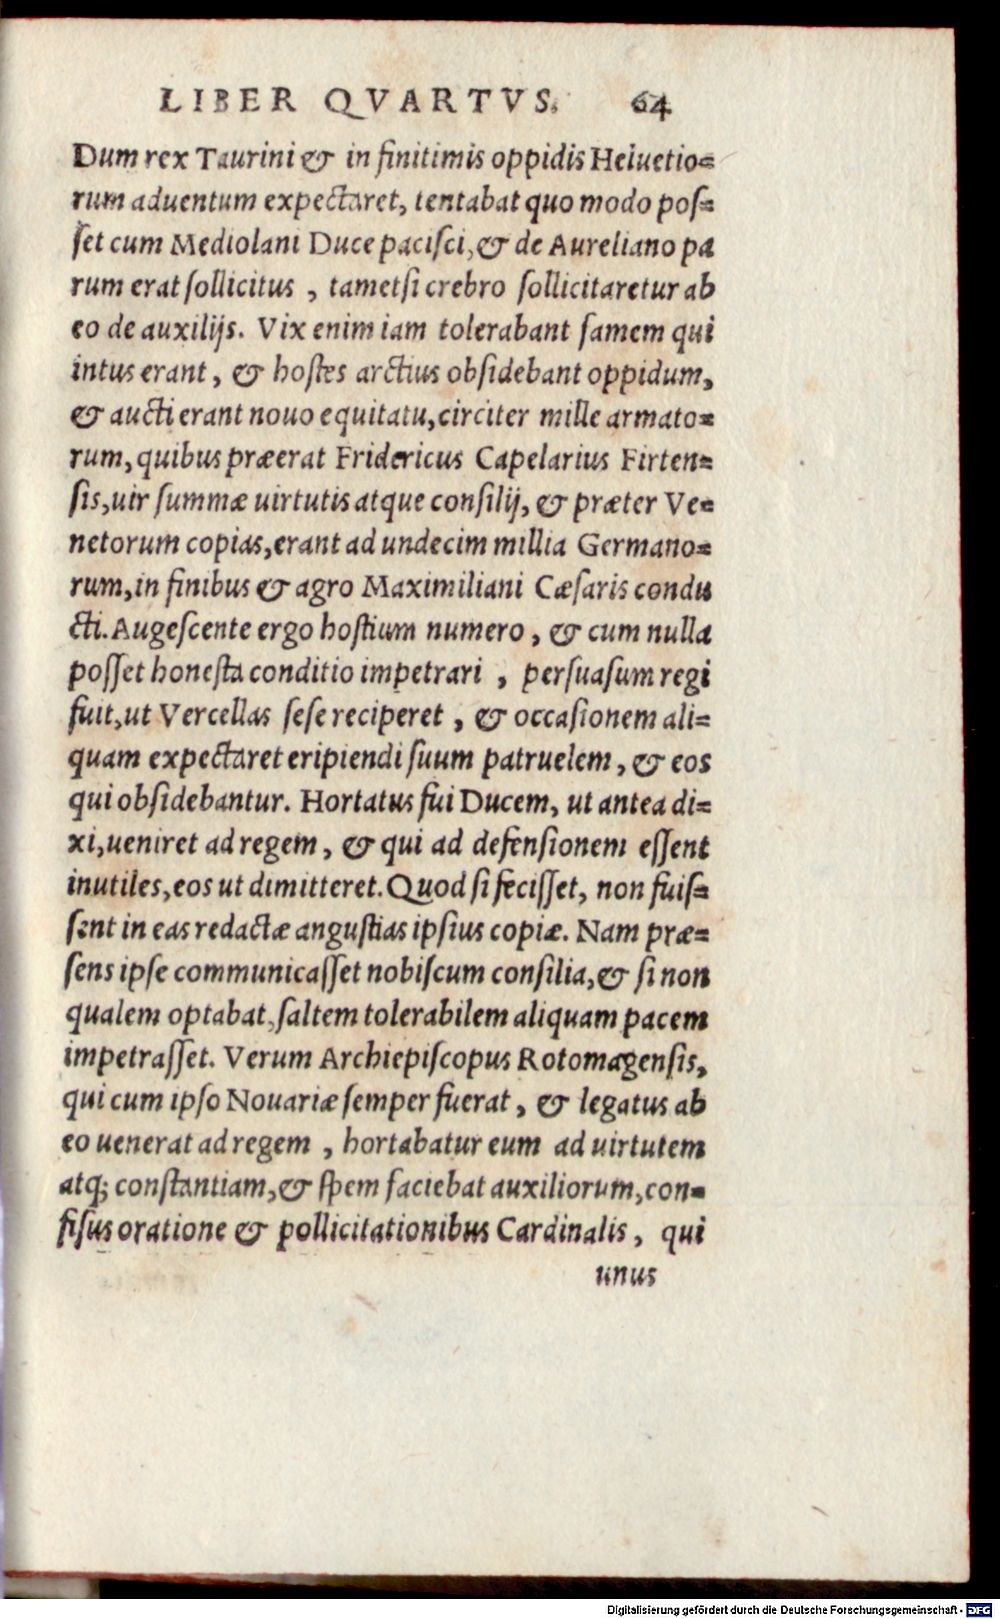 LIBER QVARTVS. 64
Dum rex Taurini & in finitimis oppidis Heluetio=
rum aduentum expectaret, tentabat quo modo pos=
set cum Mediolani Duce pacisci, & de Aureliano pa
rum erat sollicitus , tametsi crebro sollicitaretur ab
eo de auxilijs. Vix enim iam tolerabant famem qui
intus erant , & hostes arctius obsidebant oppidum,
& aucti erant nouo equitatu, circiter mille armato=
rum, quibus præerat Fridericus Capelarius Firten=
sis, uir summæ uirtutis atque consilij, & præter Ve=
netorum copias, erant ad undecim millia Germano=
rum, in finibus & agro Maximiliani Cæsaris condu
cti. Augescente ergo hostium numero , & cum nulla
posset honesta conditio impetrari , persuasum regi
fuit, ut Vercellas sese reciperet , & occasionem ali=
quam expectaret eripiendi suum patruelem , & eos
qui obsidebantur. Hortatus fui Ducem, ut antea di=
xi, ueniret ad regem , & qui ad defensionem essent
inutiles, eos ut dimitteret. Quod si fecisset, non fuis=
sent in eas redactæ angustias ipsius copiæ. Nam præ=
sens ipse communicasset nobiscum consilia, & si non
qualem optabat, saltem tolerabilem aliquam pacem
impetrasset. Verum Archiepiscopus Rotomagensis,
qui cum ipso Nouariæ semper fuerat , & legatus ab
eo uenerat ad regem , hortabatur eum ad uirtutem
atq; constantiam, & spem faciebat auxiliorum, con=
fisus oratione & pollicitationibus Cardinalis , qui
unus
Digitalisierung gefördert durch die Deutsche Forschungsgemeinschaft - DFG